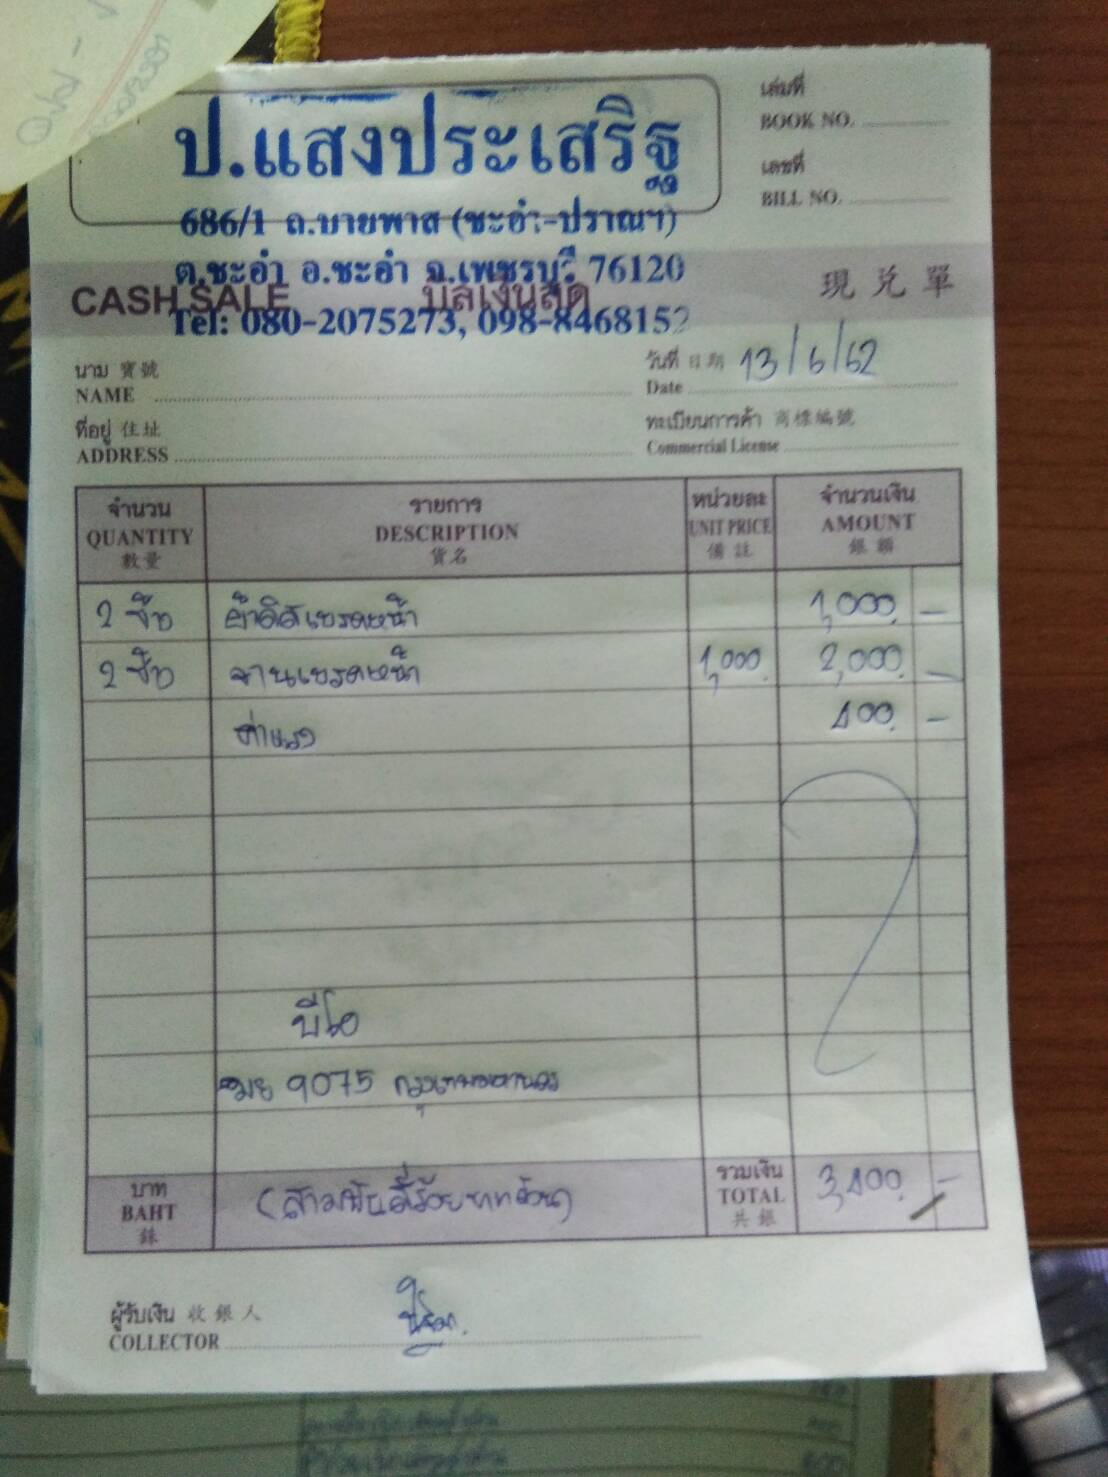 ป.แสงประเสริฐ
686/1 ถ.บายพาส (ชะอำ-ปราณฯ)
ต.ชะอำ อ.ชะอำ จ.เพชรบุรี 76120
Tel: 080-2075273, 098-8468152
เล่มที่
BOOK NO.
เลขที่
BILL NO.
CASH SALE บิลเงินสด 現兌單
นาม 寶號
NAME
วันที่ 日期 13/6/62
Date
ที่อยู่ 住址
ADDRESS
ทะเบียนการค้า 商標編號
Commercial License
จำนวน รายการ หน่วยละ จำนวนเงิน
QUANTITY DESCRIPTION UNIT PRICE AMOUNT
數量 貨名 備註 銀額
2 ชิ้น ผ้าดิสเบรคหน้า 1,000 -
2 ชิ้น จานเบรคหน้า 1,000 2,000 -
ค่าแรง 400 -
บีโอ
9075 กรุงเทพมหานคร
บาท
BAHT
銖
(สามพันสี่ร้อยบาทถ้วน)
รวมเงิน
TOTAL
共銀
3,400 -
ผู้รับเงิน 收銀人
COLLECTOR